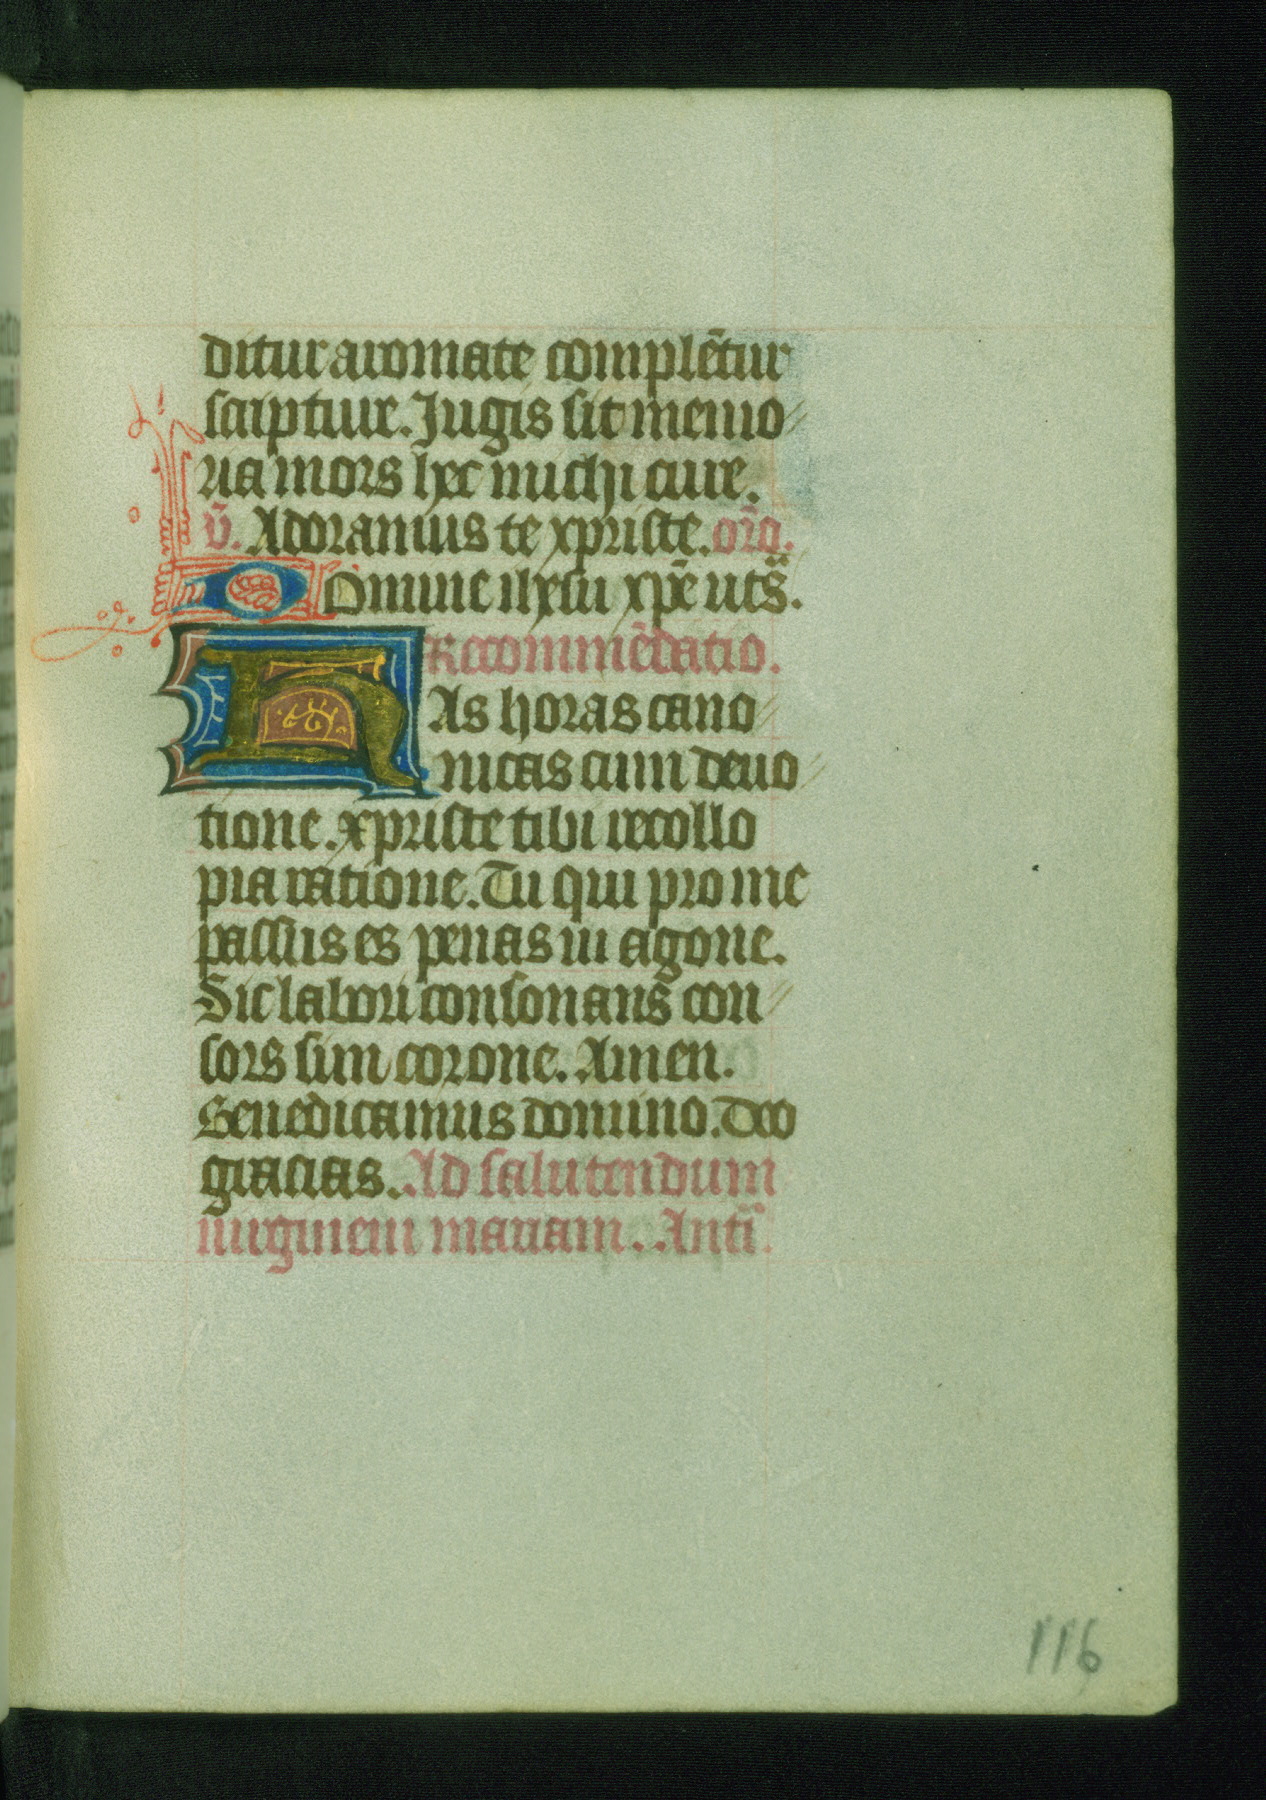 ditur aromate complētur
scriptur. Jugis sit memo
ria mors hec michi cure.
v̄. Adoramus te xpriste. or̄o.
Domine ihesu xp̄e uts̄.
Recommēdatio.
Has horas cano
nicas cum deuo
tione. xpriste tibi recollo
pia ratione. Tu qui pro me
passus es penas in agone.
Sic labori consonans con
sors sim corone. Amen.
Benedicamus domino. Deo
gracias. Ad salutendum
uirginem mariam. Antī.
116